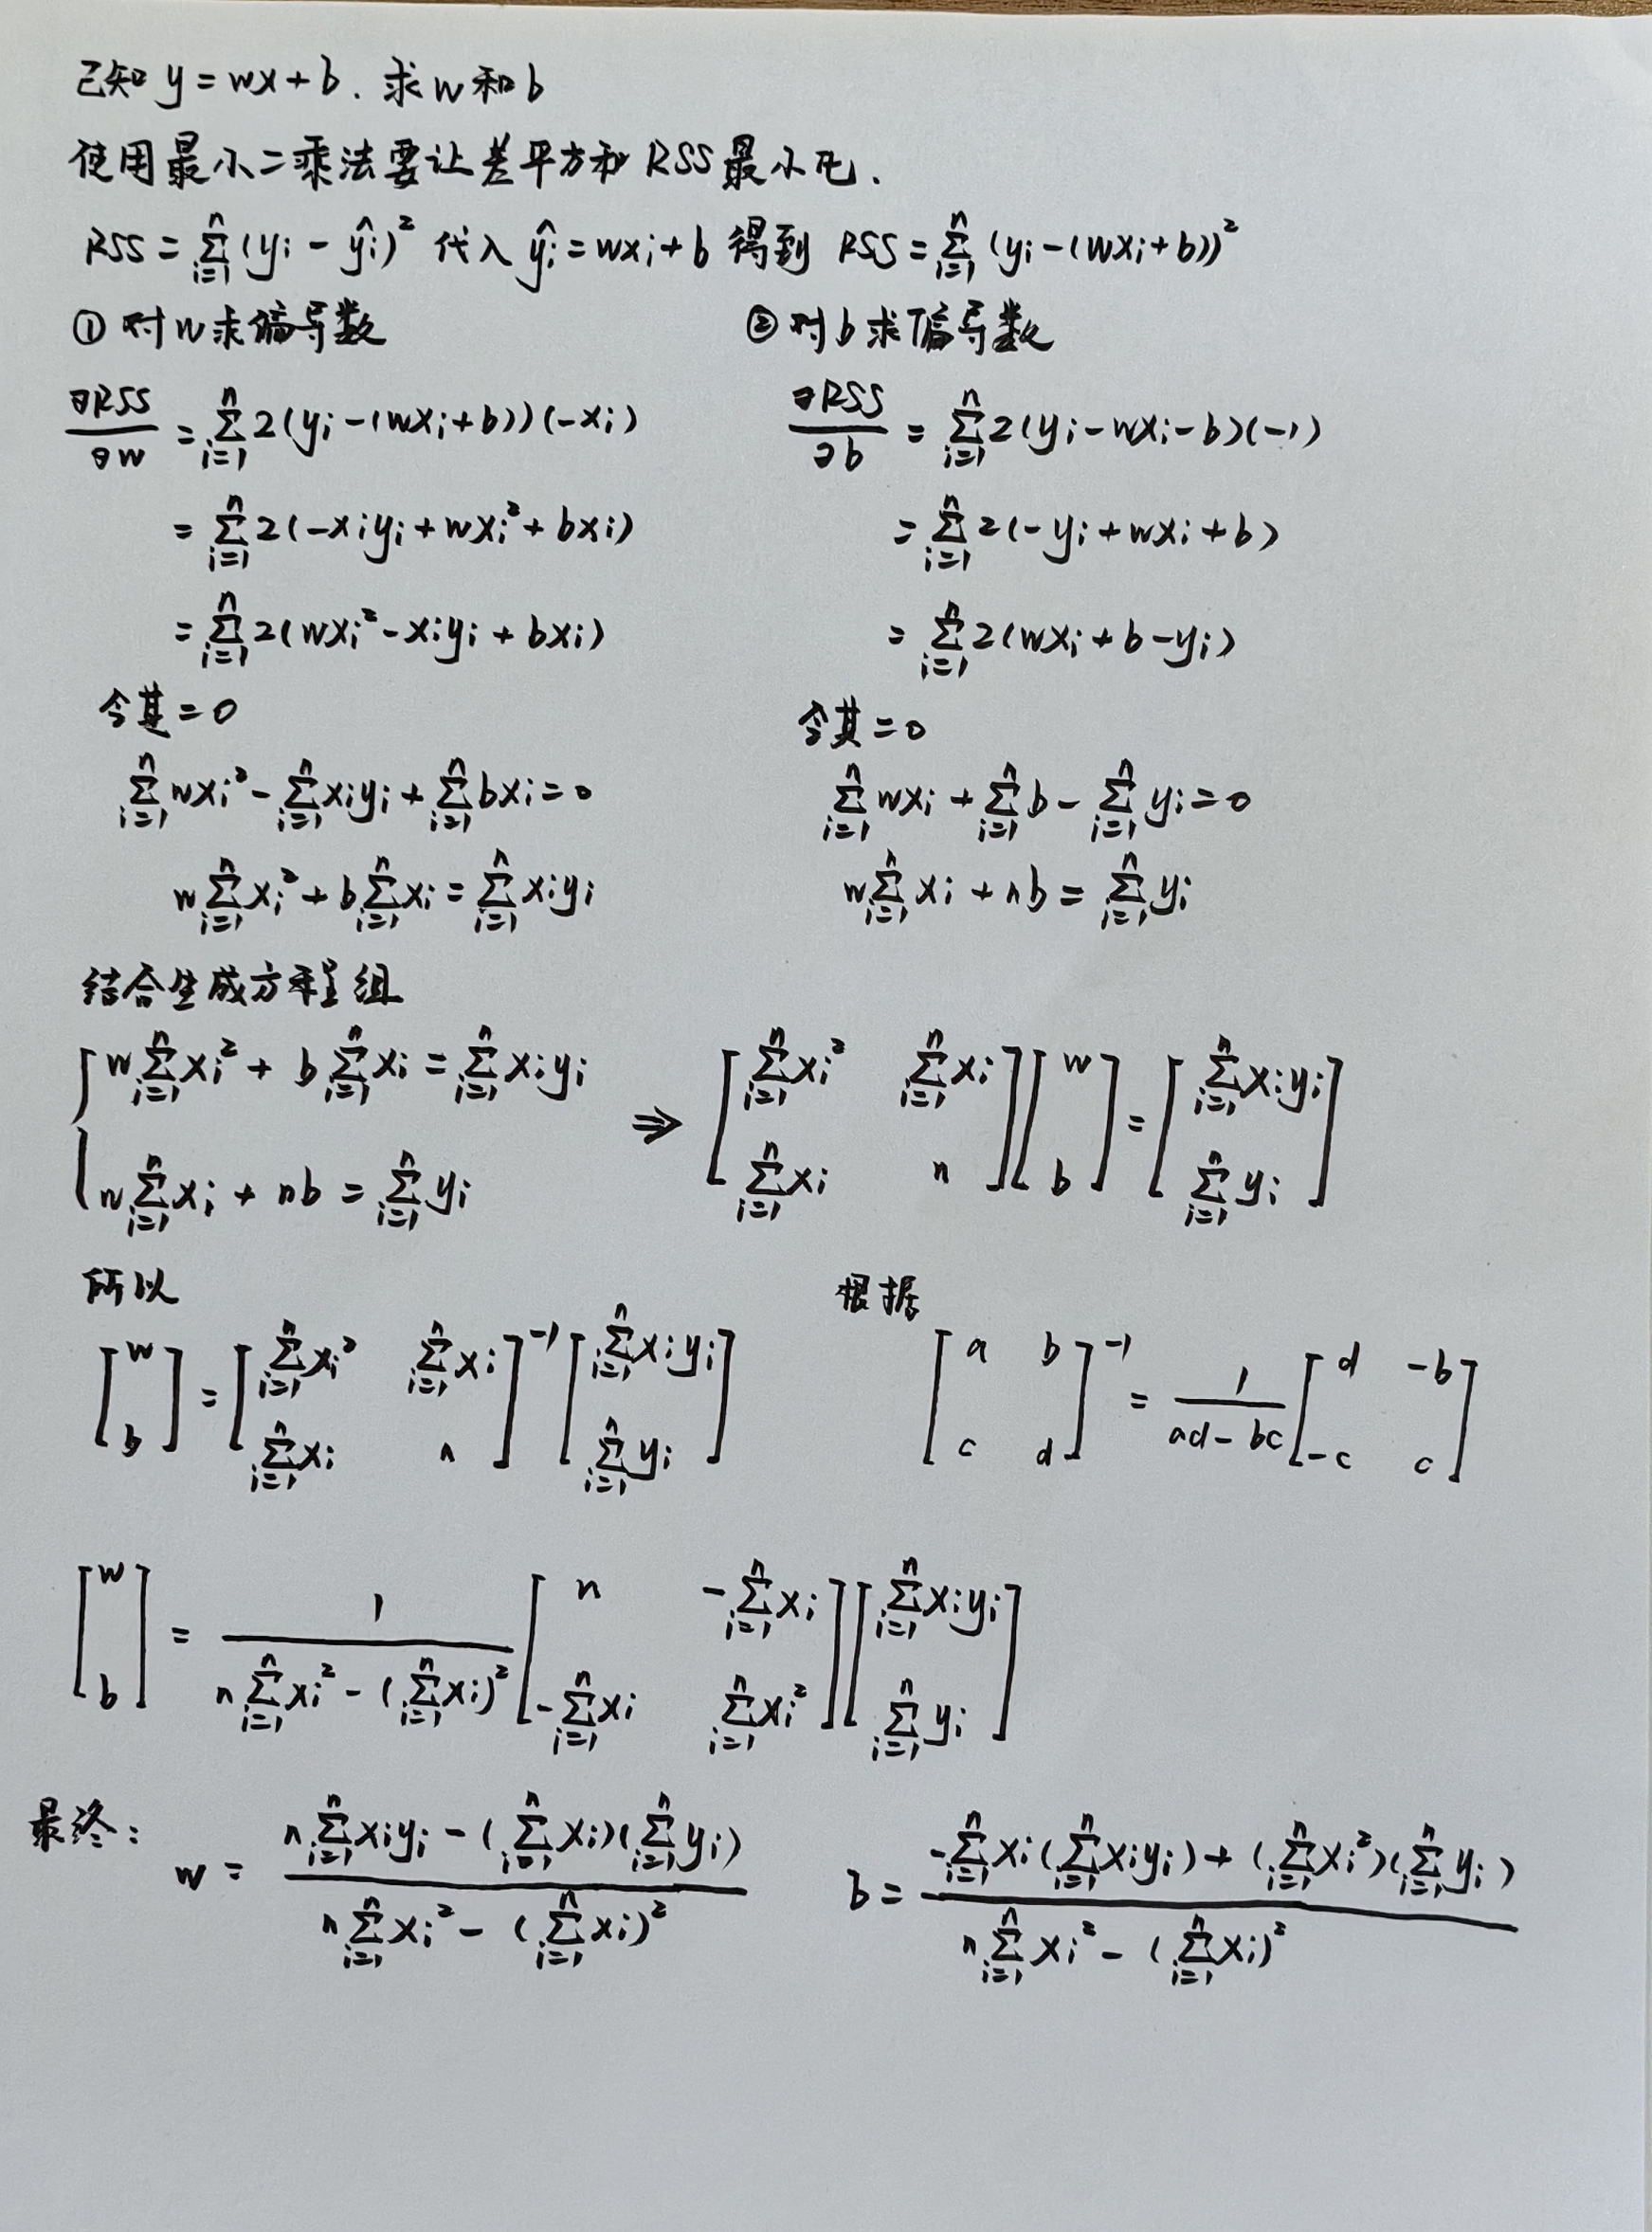 已知 y = wx + b. 求 w 和 b
使用最小二乘法要让差平方和 RSS 最小化.
RSS = \sum_{i=1}^{n} (y_i - \hat{y_i})^2 代入 \hat{y_i} = wx_i + b 得到 RSS = \sum_{i=1}^{n} (y_i - (wx_i + b))^2
① 对 w 求偏导数
\frac{\partial RSS}{\partial w} = \sum_{i=1}^{n} 2(y_i - (wx_i + b))(-x_i)
= \sum_{i=1}^{n} 2(-x_i y_i + wx_i^2 + bx_i)
= \sum_{i=1}^{n} 2(wx_i^2 - x_i y_i + bx_i)
令其 = 0
\sum_{i=1}^{n} wx_i^2 - \sum_{i=1}^{n} x_i y_i + \sum_{i=1}^{n} bx_i = 0
w\sum_{i=1}^{n} x_i^2 + b\sum_{i=1}^{n} x_i = \sum_{i=1}^{n} x_i y_i
② 对 b 求偏导数
\frac{\partial RSS}{\partial b} = \sum_{i=1}^{n} 2(y_i - wx_i - b)(-1)
= \sum_{i=1}^{n} 2(-y_i + wx_i + b)
= \sum_{i=1}^{n} 2(wx_i + b - y_i)
令其 = 0
\sum_{i=1}^{n} wx_i + \sum_{i=1}^{n} b - \sum_{i=1}^{n} y_i = 0
w\sum_{i=1}^{n} x_i + nb = \sum_{i=1}^{n} y_i
结合生成方程组
\begin{cases} w\sum_{i=1}^{n} x_i^2 + b\sum_{i=1}^{n} x_i = \sum_{i=1}^{n} x_i y_i \\ w\sum_{i=1}^{n} x_i + nb = \sum_{i=1}^{n} y_i \end{cases} \Rightarrow \begin{bmatrix} \sum_{i=1}^{n} x_i^2 & \sum_{i=1}^{n} x_i \\ \sum_{i=1}^{n} x_i & n \end{bmatrix} \begin{bmatrix} w \\ b \end{bmatrix} = \begin{bmatrix} \sum_{i=1}^{n} x_i y_i \\ \sum_{i=1}^{n} y_i \end{bmatrix}
所以
\begin{bmatrix} w \\ b \end{bmatrix} = \begin{bmatrix} \sum_{i=1}^{n} x_i^2 & \sum_{i=1}^{n} x_i \\ \sum_{i=1}^{n} x_i & n \end{bmatrix}^{-1} \begin{bmatrix} \sum_{i=1}^{n} x_i y_i \\ \sum_{i=1}^{n} y_i \end{bmatrix}
根据
\begin{bmatrix} a & b \\ c & d \end{bmatrix}^{-1} = \frac{1}{ad - bc} \begin{bmatrix} d & -b \\ -c & c \end{bmatrix}
\begin{bmatrix} w \\ b \end{bmatrix} = \frac{1}{n\sum_{i=1}^{n} x_i^2 - (\sum_{i=1}^{n} x_i)^2} \begin{bmatrix} n & -\sum_{i=1}^{n} x_i \\ -\sum_{i=1}^{n} x_i & \sum_{i=1}^{n} x_i^2 \end{bmatrix} \begin{bmatrix} \sum_{i=1}^{n} x_i y_i \\ \sum_{i=1}^{n} y_i \end{bmatrix}
最终: w = \frac{n\sum_{i=1}^{n} x_i y_i - (\sum_{i=1}^{n} x_i)(\sum_{i=1}^{n} y_i)}{n\sum_{i=1}^{n} x_i^2 - (\sum_{i=1}^{n} x_i)^2} b = \frac{-\sum_{i=1}^{n} x_i (\sum_{i=1}^{n} x_i y_i) + (\sum_{i=1}^{n} x_i^2)(\sum_{i=1}^{n} y_i)}{n\sum_{i=1}^{n} x_i^2 - (\sum_{i=1}^{n} x_i)^2}